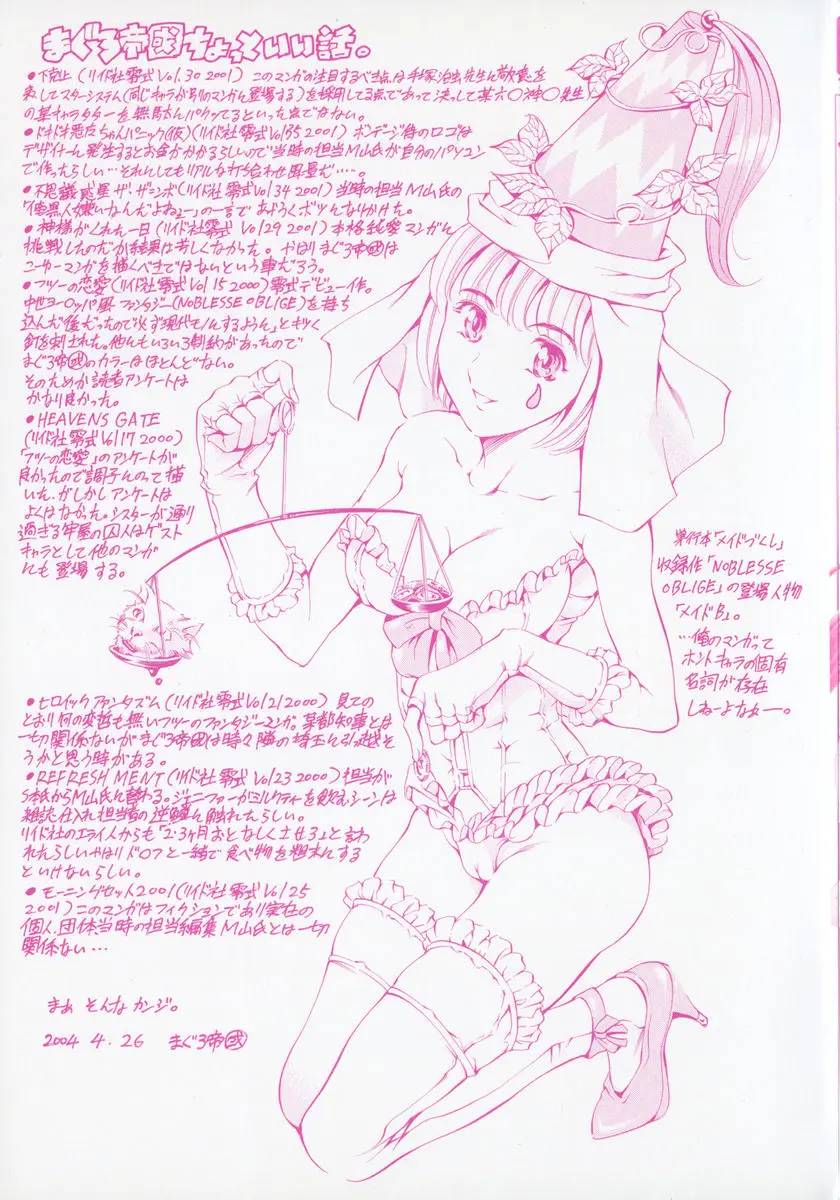 まぐろ帝國ちょっといい話。
●下剋上(リイド社零式Vol.30 2001)このマンガの注目するべき点は手塚治虫先生に敬意を
表してスターシステム(同じキャラが別のマンガに登場する)を採用してる点であって決して某六〇神〇先生
の某キャラクターを無断でパクってるといった点ではない。
(リイド社零式Vol35 2001)ボンデージ侍のロゴは
デザイナーに発注するとお金がかかるらしいので当時の担当M山氏が自分のパソコン
で作ったらしい…それにしてもリアルな打ち合わせ風景だ…。
●不思議惑星ザ・ザンボ(リイド社零式Vol34 2001)当時の担当M山氏の
「俺異人嫌いなんだよねェー」の一言であやうくボツになりかけた。
●神様がくれた一日(リイド社零式Vol29 2001)本格純愛マンガに
挑戦したのだが結果は芳しくなかった。やはりまぐろ帝國は
マンガを描くべきではないという事だろう。
●フツーの恋愛(リイド社零式Vol15 2000)零式デビュー作。
中世ヨーロッパ風ファンタジー(NOBLESSE OBLIGE)を持ち
込んだ後だったので「必ず現代モノにするように」とキツく
釘を刺された。他にもいろいろ制約があったので
まぐろ帝國のカラーはほとんどない。
そのためか読者アンケートは
かなり良かった。
●HEAVENS GATE
(リイド社零式Vol17 2000)
「フツーの恋愛」のアンケートが
良かったので調子にのって描
いた。がしかしアンケートは
よくはなかった。シスターが通り
過ぎる牢屋の囚人はゲスト
キャラとして他のマンガ
にも登場する。
●ヒロイックファンタズム(リイド社零式Vol21 2000)見ての
とおり何の変哲も無いフツーのファンタジーマンガ。某都知事とは
一切関係ないがまぐろ帝國は時々隣の埼玉に引っ越そ
うかと思う時がある。
●REFRESH MENT(リイド社零式Vol23 2000)担当が
S本氏からM山氏に替わる。ジェニファーがミルクティーを シーンは
雑誌仕入れ担当者の逆鱗に触れたらしい。
リイド社のエライ人からも「2・3ヶ月おとなしくさせろ」と言わ
れたらしいやはりドロフと一緒で食べ物を粗末にする
といけないらしい。
●モーニングセット2001(リイド社零式Vol25
2001)このマンガはフィクションであり実在の
個人、団体当時の担当編集M山氏とは一切
関係ない…
まぁ そんな カンジ。
2004 4.26 まぐろ帝國
単行本「メイドづくし」
収録作「NOBLESSE
OBLIGE」の登場人物
「メイドB」。
…俺のマンガって
ホントキャラの固有
名詞が存在
しねーよなぁー。